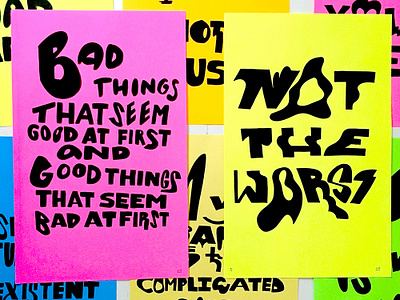 BAD
THINGS
THAT SEEM
GOOD AT FIRST
AND
GOOD THINGS
THAT SEEM
BAD AT FIRST
NOT
THE
WORST
US
COMPLICATED
EXISTENT